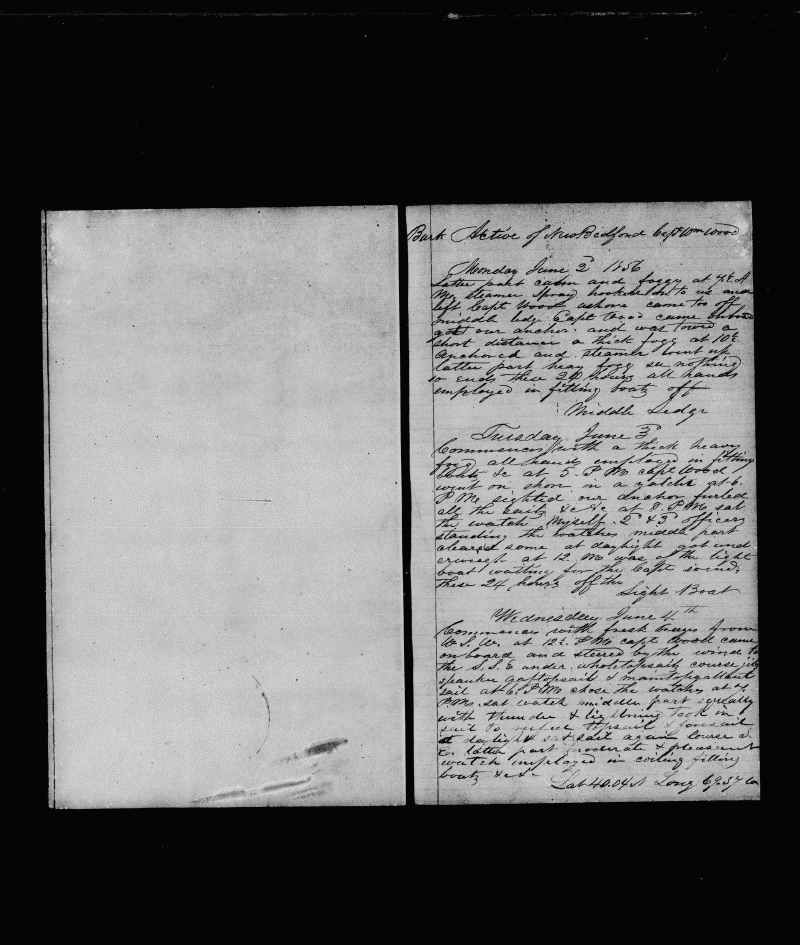 Bark Active of New Bedford Capt Wm Wood
Monday June 2d 1856
Latter part calm and foggy at 7½ A
M steamer Spray hooked on to us and
left Capt Wood ashore came too off
middle ledge Capt Wood came onboard
got our anchor and was towed a
short distance a thick fogg at 10½
anchored and steamer went up
latter part heavy fogg see nothing
so ends these 24 hours all hands
employed in fitting boats off
Middle Ledge
Tuesday June 3d
Commences with a thick heavy
fogg all hands employed in fitting
boats &c at 5. P M capt Wood
went on shore in a yatcht at 6.
P M sighted our anchor furled
all the sails &c &c at 8. P M sat
the watch Myself. 2d & 3d officers
standing the watches middle part
cleared some at daylight got und
erweigh at 12 M was of the light
boat waiting for the Capt
these 24 hours off the
Light Boat
Wednesday June 4th
Commences with fresh breezes from
W. S. W. at 12½ P M capt Wood came
onboard and steered by the wind to
the S. S. E under wholetopsails courses jib
spanker gafftopsail & maintopgallant
sail at 6. P M chose the watches at
P M. sat watch middle part squally
with thunder & lightning took in
sail to topsail & foresail
at daylight sat sail again
latter part moderate & pleasant
watch employed in coiling fitting
boats &c &c
Lat 40.04 N Long 69.37 W